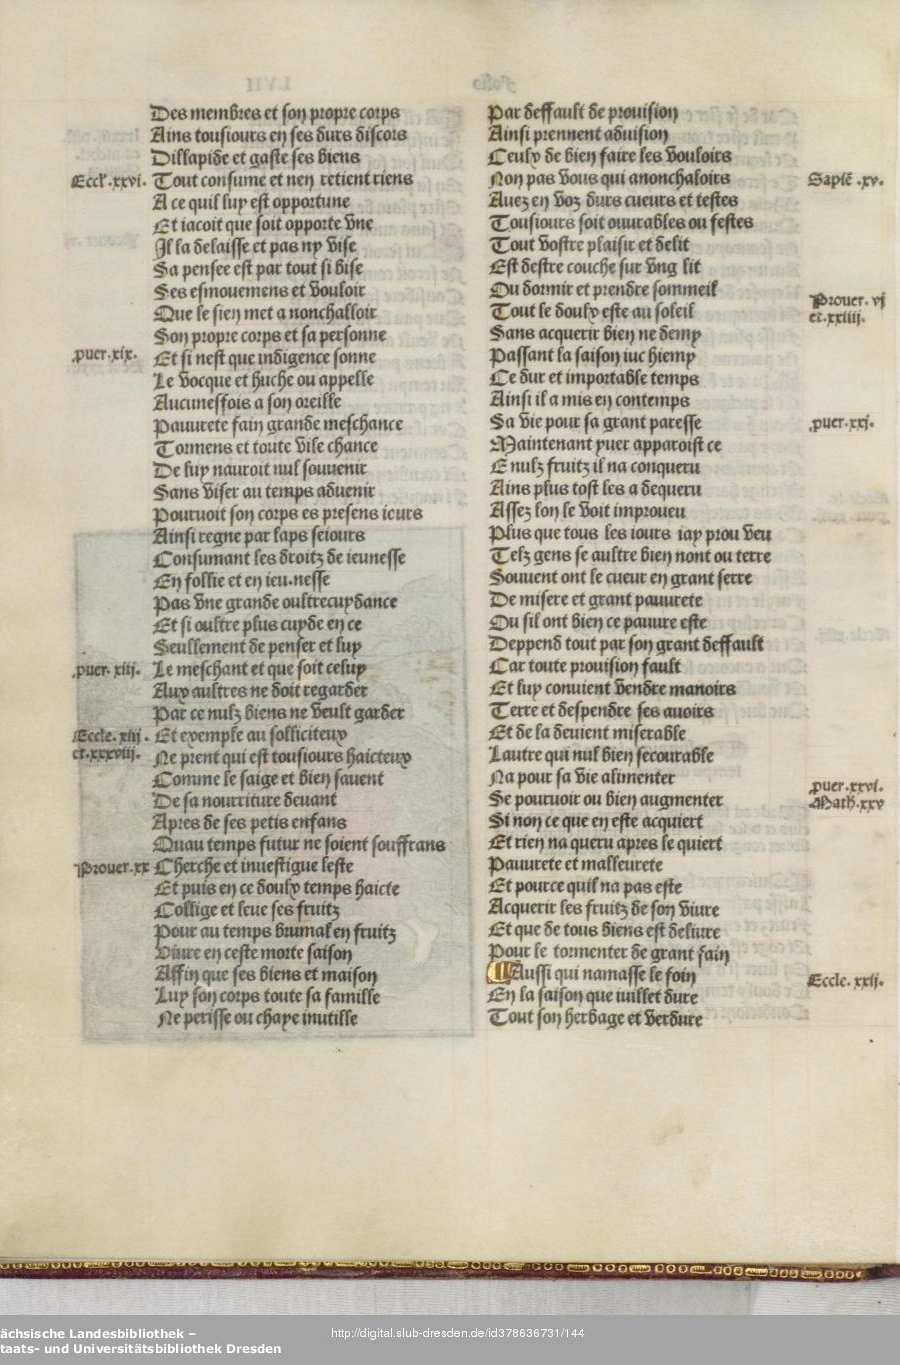 Des membres et son propre corps
Ains tousiours en ses durs discors
Dillapide et gaste ses biens
Eccl'.xxvi. Tout consume et nen retient riens
A ce quil luy est opportune
Et iacoit que soit opporte vne
Il la delaisse et pas ny vise
Sa pensee est par tout si bise
Ses esmouemens et vouloir
Que le sien met a nonchalloir
Son propre corps et sa personne
puer.xix. Et si nest que indigence sonne
Le vocque et huche ou appelle
Aucunesfois a son oreille
Pauurete fain grande meschance
Tormens et toute vile chance
De luy nauroit nul souuenir
Sans viser au temps aduenir
Pouruoit son corps es presens ieurs
Ainsi regne par laps seiours
Consumant les droitz de ieunesse
En follie et en ieu.nesse
Pas vne grande oultrecuydance
Et si oultre plus cuyde en ce
Seullement de penser et luy
puer. xiii. Le meschant et que soit celuy
Aux aultres ne doit regarder
Par ce nulz biens ne veult garder
Eccle. xiii. Et exemple au solliciteux
et.xxxviii. Ne prent qui est tousiours haicteux
Comme le saige et bien sauent
De sa nourriture deuant
Apres de ses petis enfans
Quau temps futur ne soient souffrans
Prouer.xx Cherche et inuestigue leste
Et puis en ce doulx temps haicte
Collige et leue ses fruitz
Pour au temps brumal en fruitz
Viure en ceste morte saison
Affin que ses biens et maison
Luy son corps toute sa famille
Ne perisse ou chaye inutille
Par deffault de prouision
Ainsi prennent aduision
Ceulx de bien faire les vouloirs
Non pas vous qui anonchaloirs Sapie .xv.
Auez en voz durs cueurs et testes
Tousiours soit ouurables ou festes
Tout vostre plaisir et delit
Est destre couche sur vng lit
Ou dormir et prendre sommeil
Tout le doulx este au soleil Prouer. vj
et.xxiiij.
Sans acquerir bien ne demy
Passant la saison iuc hiemy
Ce dur et importable temps
Ainsi il a mis en contemps
Sa vie pour sa grant paresse puer.xxj.
Maintenant yuer apparoist ce
E nulz fruitz il na conqueru
Ains plus tost les a dequeru
Assez lon le voit improueu
Plus que tous les iours iay prou veu
Telz gens se aultre bien nont ou terre
Souuent ont le cueur en grant serre
De misere et grant pauurete
Ou sil ont bien ce pauure este
Deppend tout par son grant deffault
Car toute prouision fault
Et luy conuient vendre manoirs
Terre et despendre ses auoirs
Et de la deuient miserable
Lautre qui nul bien secourable
Na pour sa vie alimenter puer.xxvi.
Se pouruoir ou bien augmenter Math.xxv
Si non ce que en este acquiert
Et rien na queru apres le quiert
Pauurete et malleurete
Et pource quil na pas este
Acquerir les fruitz de son viure
Et que de tous biens est deliure
Pour le tormenter de grant fain
Aussi qui namasse le foin Eccle. xxij.
En la saison que iuillet dure
Tout son herbage et verdure
ächsische Landesbibliothek –
taats- und Universitätsbibliothek Dresden
http://digital.slub-dresden.de/id378636731/144